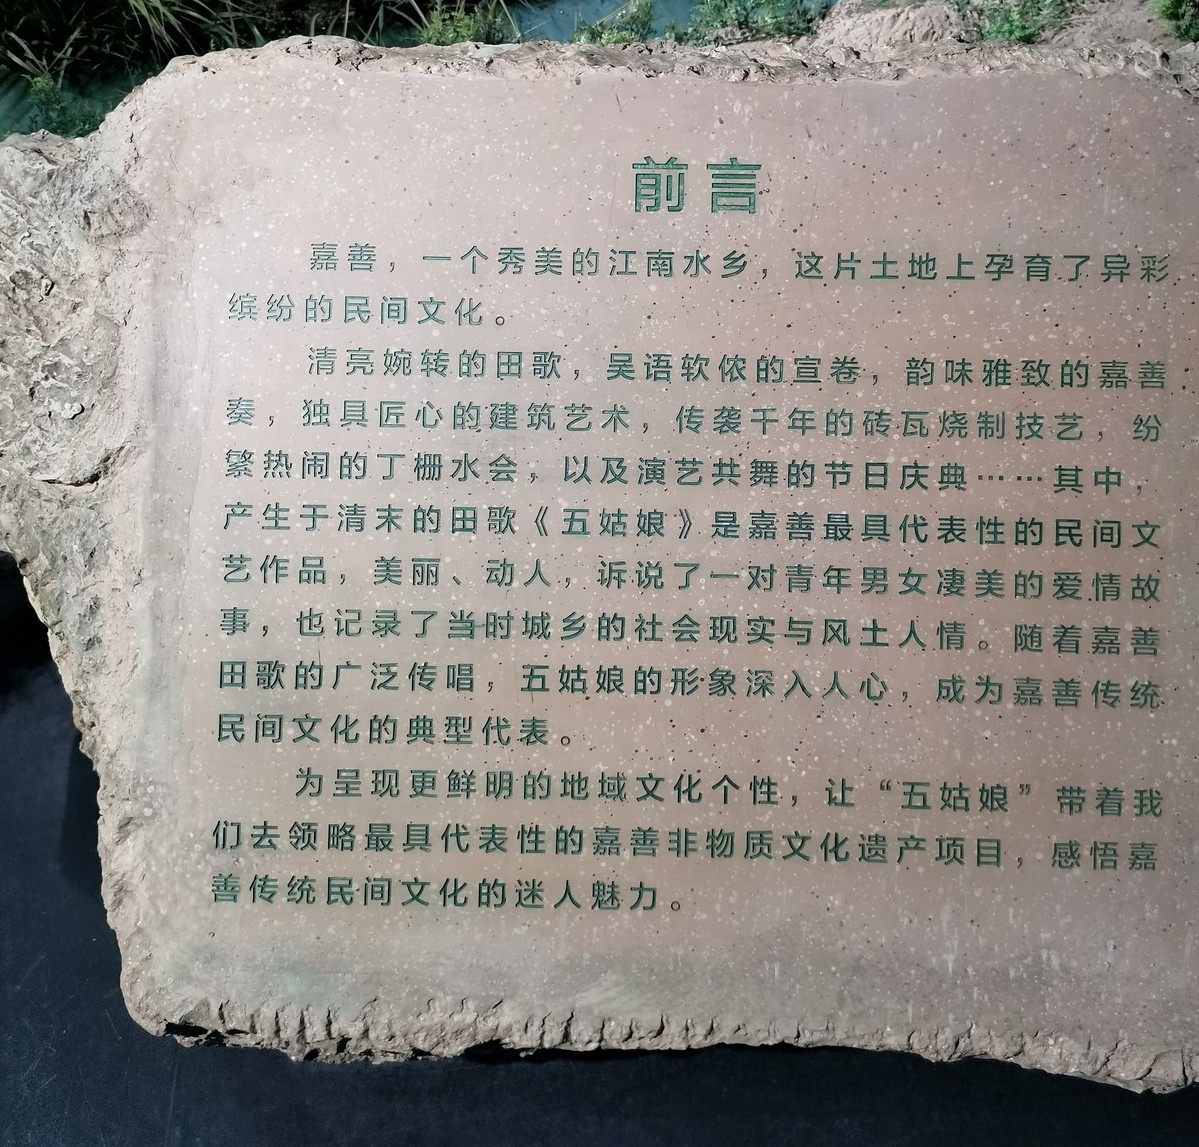 前言
嘉善，一个秀美的江南水乡，这片土地上孕育了异彩
缤纷的民间文化。
清亮婉转的田歌，吴语软侬的宣卷，韵味雅致的嘉善
奏，独具匠心的建筑艺术，传袭千年的砖瓦烧制技艺，纷
繁热闹的丁栅水会，以及演艺共舞的节日庆典……其中，
产生于清末的田歌《五姑娘》是嘉善最具代表性的民间文
艺作品，美丽、动人，诉说了一对青年男女凄美的爱情故
事，也记录了当时城乡的社会现实与风土人情。随着嘉善
田歌的广泛传唱，五姑娘的形象深入人心，成为嘉善传统
民间文化的典型代表。
为呈现更鲜明的地域文化个性，让“五姑娘”带着我
们去领略最具代表性的嘉善非物质文化遗产项目，感悟嘉
善传统民间文化的迷人魅力。